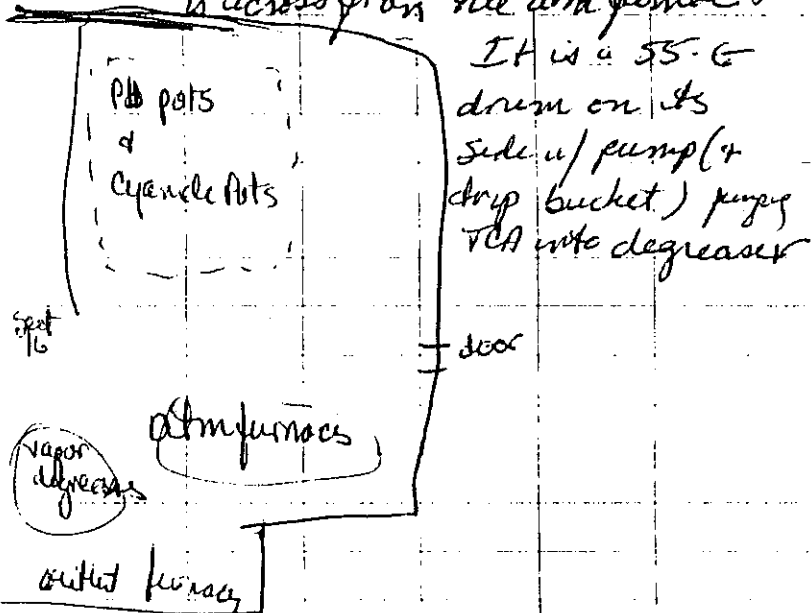 is across from the atm furnaces.
It is a 55-G
drum on its
side w/ pump (+
drip bucket) pumping
TCA into degreaser
Pb pots
&
Cyanide Pots
door
atm furnaces
vapor
degreaser
furnaces